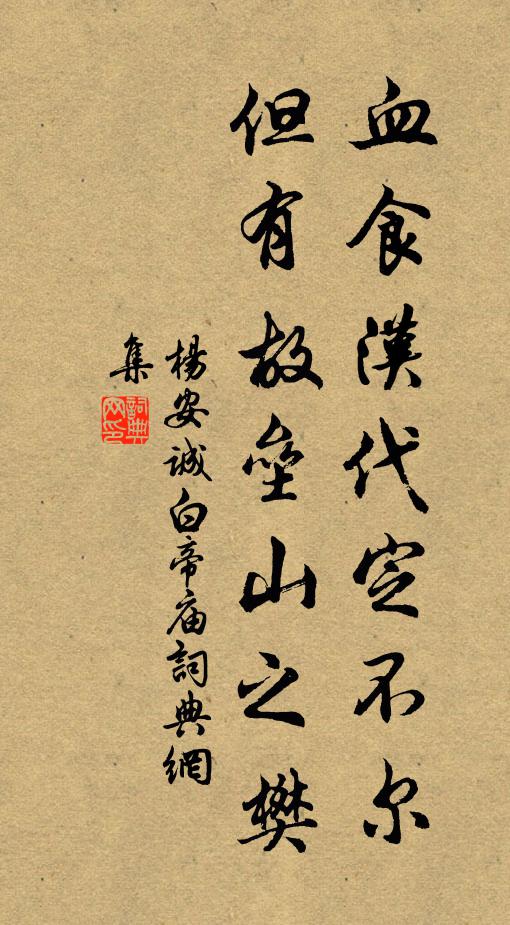 血食漢代定不尔
但有故壘山之樊
楊安诚白帝庙詞典網
集
詞典
网印